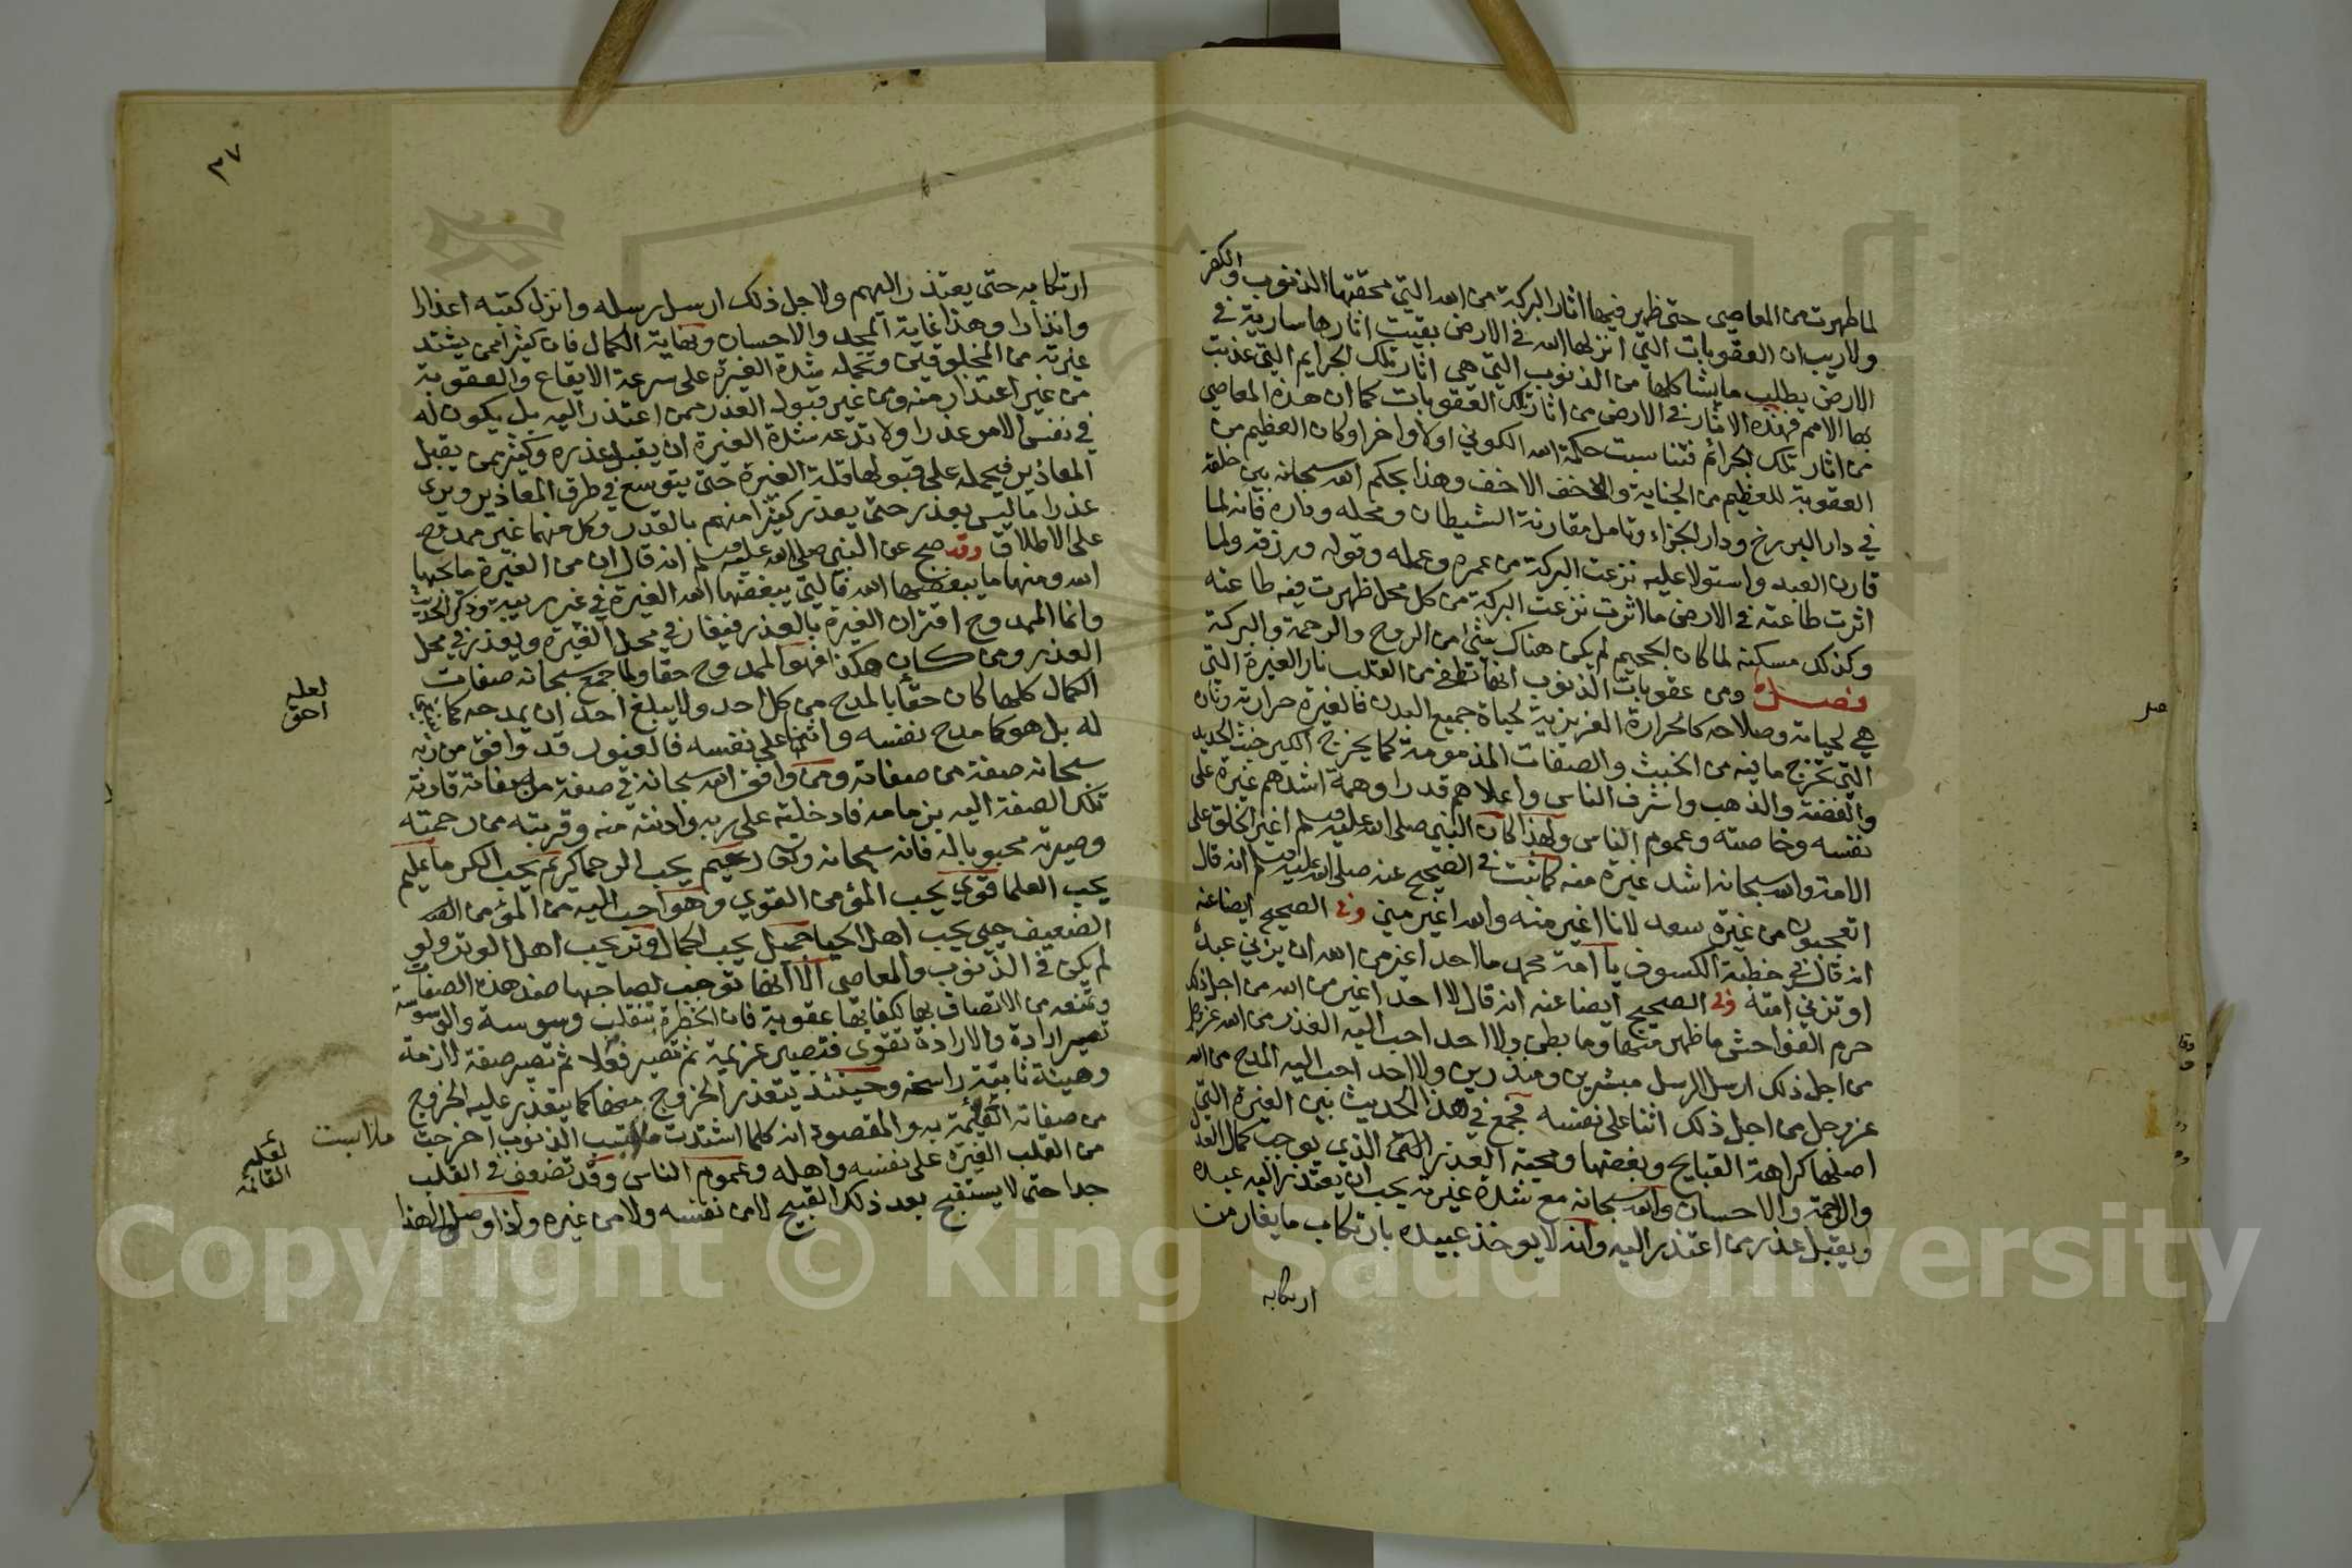 لما طهرت من المعاصي حتى ظهر فيها اثار البركة من الله التي محقتها الذنوب والكفر
ولا ريب ان العقوبات التي انزلها الله في الارض بقيت اثارها سارية في
الارض يطلب ما يشاكلها من الذنوب التي هي اثار تلك الجرايم التي عذبت
بها الامم فهذه الاثار في الارض من اثار تلك العقوبات كما ان هذه المعاصي
من اثار تلك الجرائم فتناسبت حكمة الله الكوني اولا واخرا وكان العظيم من
العقوبة للعظيم من الجناية والاخف الاخف وهذا يحكم الله سبحانه بين خلقه
في دار البرزخ ودار الجزاء وتامل مقارنة الشيطان ومحله وداره فانه لما
قارن العبد واستولا عليه نزعت البركة من عمره وعمله وقوله ورزقه ولما
اثرت طاعته في الارض ما اثرت نزعت البركة من كل محل ظهرت فيه طاعته
وكذلك مسكنه لما كان الجحيم لم يكن هناك شئ من الروح والرحمة والبركة
فصل ومن عقوبات الذنوب انها تطفئ من القلب نار الغيرة التي
هي لحياته وصلاحه كالحرارة الغريزية لحياة جميع البدن فالغيرة حرارته وناره
التي تخرج ما فيه من الخبث والصفات المذمومة كما يخرج الكير خبث الحديد
والفضة والذهب واشرف الناس واعلاهم قدرا وهمة اشدهم غيرة على
نفسه وخاصته وعموم الناس ولهذا كان النبي صلى الله عليه وسلم اغير الخلق على
الامة والله سبحانه اشد غيرة منه كما ثبت في الصحيح عنه صلى الله عليه وسلم انه قال
اتعجبون من غيرة سعد لانا اغير منه والله اغير مني وفي الصحيح ايضا عنه
انه قال في خطبة الكسوف يا امة محمد ما احد اغير من الله ان يزني عبده
او تزني امته وفي الصحيح ايضا عنه انه قال لا احد اغير من الله من اجل ذلك
حرم الفواحش ما ظهر منها وما بطن ولا احد احب اليه العذر من الله عز وجل
من اجل ذلك ارسل الرسل مبشرين ومنذرين ولا احد احب اليه المدح من الله
عز وجل من اجل ذلك اثنا على نفسه فجمع في هذا الحديث بين الغيرة التي
اصلها كراهة القبايح وبغضها ومحبة العذر الذي يوجب كمال العدل
والرحمة والاحسان والله سبحانه مع شدة غيرته يحب ان يعتذر اليه عبده
ويقبل عذر من اعتذر اليه وانه لا يوخذ عبيده بارتكاب ما يغار من
ارتكابه
٣٧
ارتكابه حتى يعتذر اليهم ولاجل ذلك ارسل رسله وانزل كتبه اعذارا
وانذارا وهذا غاية المجد والاحسان ونهاية الكمال فان كثيرا ممن يشتد
غيرته من المخلوقين وتحمله شدة الغيرة على سرعة الايقاع والعقوبة
من غير اعتذار منه ومن غير قبول العذر ممن اعتذر اليه بل يكون له
في نفس الامر عذرا ولا تدعه شدة الغيرة ان يقبل عذره وكثير ممن يقبل
المعاذير فيحمله على قبولها قلة الغيرة حتى يتوسع في طرق المعاذير ويرى
عذرا ما ليس بعذر حتى يعذر كثيرا منهم بالقدر وكل منهما غير ممدوح
على الاطلاق وقد صح عن النبي صلى الله عليه وسلم انه قال ان من الغيرة ما يحبها
الله ومنها ما يبغضها الله فالتي يبغضها الله الغيرة في غير ريبة وذكر الحديث
وانما الممدوح اقتران الغيرة بالعذر فيغار في محل الغيرة ويعذر في محل
العذر ومن كان هكذا فهو الممدوح حقا ولما جمع سبحانه صفات
الكمال كلها كان حقا بالمدح من كل احد ولا يبلغ احد ان يمدحه كما ينبغي
لعله
احق
له بل هو كما مدح نفسه واثنى على نفسه فالغيور قد وافق من ربه
سبحانه صفة من صفاته ومن وافق الله سبحانه في صفة من صفاته قادته
تلك الصفة اليه بزمامه فادخلته على ربه وادنته منه وقربته من رحمته
وصيرته محبوبا له فانه سبحانه رحيم يحب الرحما كريم يحب الكرما عليم
يحب العلما قوي يحب المؤمن القوي وهو احب اليه من المؤمن
الضعيف حيي يحب اهل الحيا جميل يحب الجمال وتر يحب اهل الوتر ولو
لم يكن في الذنوب والمعاصي الا انها توجب لصاحبها ضد هذه الصفات
وتمنعه من الاتصاف بها لكفا بها عقوبة فان الخطرة تنقلب وسوسة والوسوسة
تصير ارادة والارادة تقوى فتصير عزيمة ثم تصير فعلا ثم تصير صفة لازمة
وهيئة ثابتة راسخة وحينئذ يتعذر الخروج منها كما يتعذر عليه الخروج
من صفاته القائمة به والمقصود انه كلما اشتدت ملابسته الذنوب اخرجت
ملابست
لعله
القائمة
من القلب الغيرة على نفسه واهله وعموم الناس وقد تضعف في القلب
جدا حتى لا يستقبح بعد ذلك القبيح لا من نفسه ولا من غيره واذا وصل الى هذا